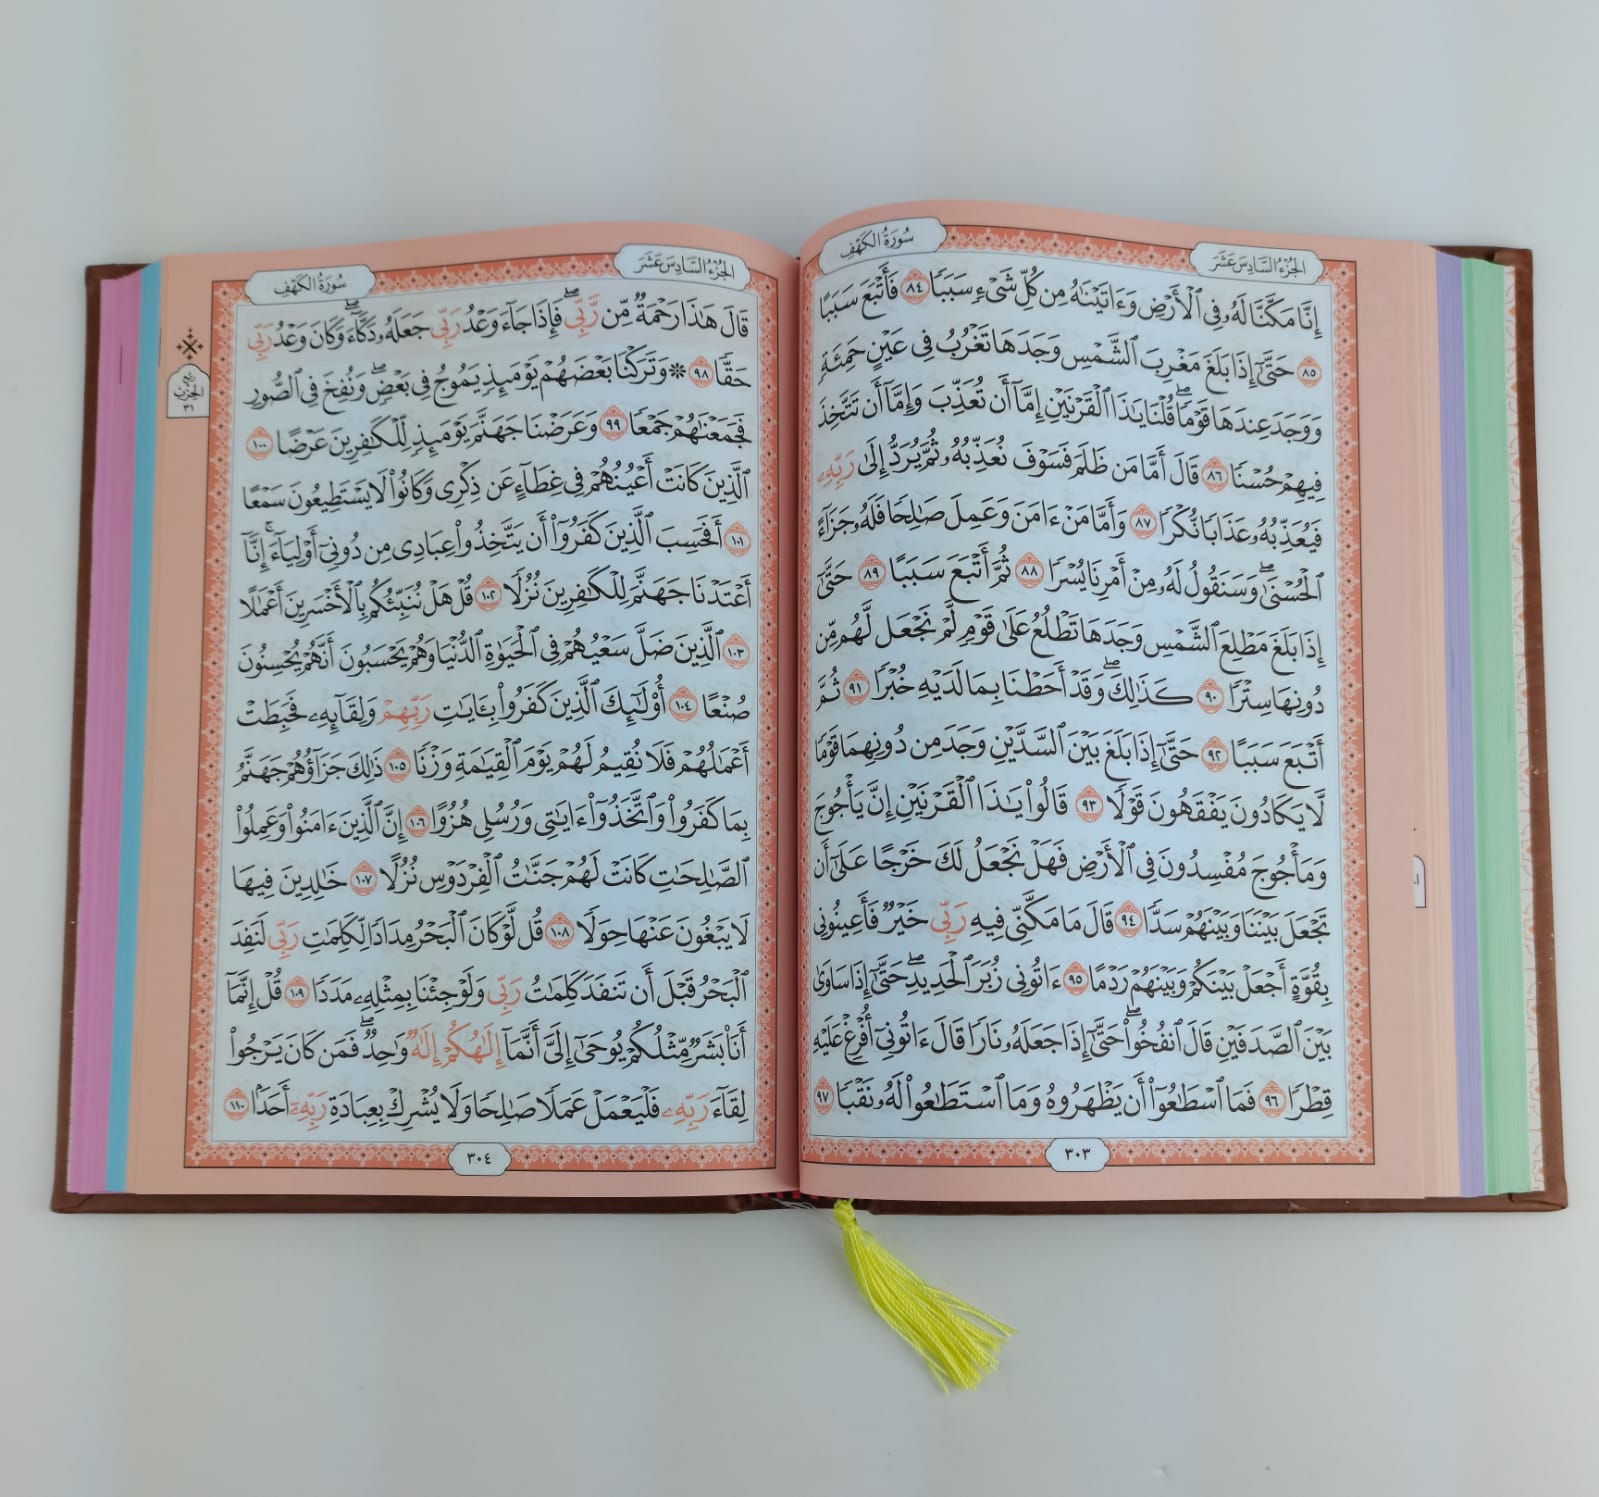 سُورَةُ الكَهْفِ
الجُزْءُ السَّادِسَ عَشَرَ
إِنَّا مَكَّنَّا لَهُۥ فِي ٱلْأَرْضِ وَءَاتَيْنَٰهُ مِن كُلِّ شَىْءٍ سَبَبًا ٨٤ فَأَتْبَعَ سَبَبًا
٨٥ حَتَّىٰٓ إِذَا بَلَغَ مَغْرِبَ ٱلشَّمْسِ وَجَدَهَا تَغْرُبُ فِي عَيْنٍ حَمِئَةٍ
وَوَجَدَ عِندَهَا قَوْمًاۖ قُلْنَا يَٰذَا ٱلْقَرْنَيْنِ إِمَّآ أَن تُعَذِّبَ وَإِمَّآ أَن تَتَّخِذَ
فِيهِمْ حُسْنًا ٨٦ قَالَ أَمَّا مَن ظَلَمَ فَسَوْفَ نُعَذِّبُهُۥ ثُمَّ يُرَدُّ إِلَىٰ رَبِّهِۦ
فَيُعَذِّبُهُۥ عَذَابًا نُّكْرًا ٨٧ وَأَمَّا مَنْ ءَامَنَ وَعَمِلَ صَٰلِحًا فَلَهُۥ جَزَآءً
ٱلْحُسْنَىٰۖ وَسَنَقُولُ لَهُۥ مِنْ أَمْرِنَا يُسْرًا ٨٨ ثُمَّ أَتْبَعَ سَبَبًا ٨٩ حَتَّىٰٓ
إِذَا بَلَغَ مَطْلِعَ ٱلشَّمْسِ وَجَدَهَا تَطْلُعُ عَلَىٰ قَوْمٍ لَّمْ نَجْعَل لَّهُم مِّن
دُونِهَا سِتْرًا ٩٠ كَذَٰلِكَۖ وَقَدْ أَحَطْنَا بِمَا لَدَيْهِ خُبْرًا ٩١ ثُمَّ
أَتْبَعَ سَبَبًا ٩٢ حَتَّىٰٓ إِذَا بَلَغَ بَيْنَ ٱلسَّدَّيْنِ وَجَدَ مِن دُونِهِمَا قَوْمًا
لَّا يَكَادُونَ يَفْقَهُونَ قَوْلًا ٩٣ قَالُوا۟ يَٰذَا ٱلْقَرْنَيْنِ إِنَّ يَأْجُوجَ
وَمَأْجُوجَ مُفْسِدُونَ فِي ٱلْأَرْضِ فَهَلْ نَجْعَلُ لَكَ خَرْجًا عَلَىٰٓ أَن
تَجْعَلَ بَيْنَنَا وَبَيْنَهُمْ سَدًّا ٩٤ قَالَ مَا مَكَّنِّي فِيهِ رَبِّي خَيْرٌ فَأَعِينُونِي
بِقُوَّةٍ أَجْعَلْ بَيْنَكُمْ وَبَيْنَهُمْ رَدْمًا ٩٥ ءَاتُونِي زُبَرَ ٱلْحَدِيدِۖ حَتَّىٰٓ إِذَا سَاوَىٰ
بَيْنَ ٱلصَّدَفَيْنِ قَالَ ٱنفُخُوا۟ۖ حَتَّىٰٓ إِذَا جَعَلَهُۥ نَارًا قَالَ ءَاتُونِيٓ أُفْرِغْ عَلَيْهِ
قِطْرًا ٩٦ فَمَا ٱسْطَٰعُوٓا۟ أَن يَظْهَرُوهُ وَمَا ٱسْتَطَٰعُوا۟ لَهُۥ نَقْبًا ٩٧
٣٠٣
سُورَةُ الكَهْفِ
الجُزْءُ السَّادِسَ عَشَرَ
قَالَ هَٰذَا رَحْمَةٌ مِّن رَّبِّيۖ فَإِذَا جَآءَ وَعْدُ رَبِّي جَعَلَهُۥ دَكَّآءَۖ وَكَانَ وَعْدُ رَبِّي
حَقًّا ٩٨ ۞ وَتَرَكْنَا بَعْضَهُمْ يَوْمَئِذٍ يَمُوجُ فِي بَعْضٍۖ وَنُفِخَ فِي ٱلصُّورِ
فَجَمَعْنَٰهُمْ جَمْعًا ٩٩ وَعَرَضْنَا جَهَنَّمَ يَوْمَئِذٍ لِّلْكَٰفِرِينَ عَرْضًا ١٠٠
ٱلَّذِينَ كَانَتْ أَعْيُنُهُمْ فِي غِطَآءٍ عَن ذِكْرِي وَكَانُوا۟ لَا يَسْتَطِيعُونَ سَمْعًا
١٠١ أَفَحَسِبَ ٱلَّذِينَ كَفَرُوٓا۟ أَن يَتَّخِذُوا۟ عِبَادِي مِن دُونِيٓ أَوْلِيَآءَۚ إِنَّآ
أَعْتَدْنَا جَهَنَّمَ لِلْكَٰفِرِينَ نُزُلًا ١٠٢ قُلْ هَلْ نُنَبِّئُكُم بِٱلْأَخْسَرِينَ أَعْمَٰلًا
١٠٣ ٱلَّذِينَ ضَلَّ سَعْيُهُمْ فِي ٱلْحَيَوٰةِ ٱلدُّنْيَا وَهُمْ يَحْسَبُونَ أَنَّهُمْ يُحْسِنُونَ
صُنْعًا ١٠٤ أُو۟لَٰٓئِكَ ٱلَّذِينَ كَفَرُوا۟ بِـَٔايَٰتِ رَبِّهِمْ وَلِقَآئِهِۦ فَحَبِطَتْ
أَعْمَٰلُهُمْ فَلَا نُقِيمُ لَهُمْ يَوْمَ ٱلْقِيَٰمَةِ وَزْنًا ١٠٥ ذَٰلِكَ جَزَآؤُهُمْ جَهَنَّمُ
بِمَا كَفَرُوا۟ وَٱتَّخَذُوٓا۟ ءَايَٰتِي وَرُسُلِي هُزُوًا ١٠٦ إِنَّ ٱلَّذِينَ ءَامَنُوا۟ وَعَمِلُوا۟
ٱلصَّٰلِحَٰتِ كَانَتْ لَهُمْ جَنَّٰتُ ٱلْفِرْدَوْسِ نُزُلًا ١٠٧ خَٰلِدِينَ فِيهَا
لَا يَبْغُونَ عَنْهَا حِوَلًا ١٠٨ قُل لَّوْ كَانَ ٱلْبَحْرُ مِدَادًا لِّكَلِمَٰتِ رَبِّي لَنَفِدَ
ٱلْبَحْرُ قَبْلَ أَن تَنفَدَ كَلِمَٰتُ رَبِّي وَلَوْ جِئْنَا بِمِثْلِهِۦ مَدَدًا ١٠٩ قُلْ إِنَّمَآ
أَنَا۠ بَشَرٌ مِّثْلُكُمْ يُوحَىٰٓ إِلَيَّ أَنَّمَآ إِلَٰهُكُمْ إِلَٰهٌ وَٰحِدٌۖ فَمَن كَانَ يَرْجُوا۟
لِقَآءَ رَبِّهِۦ فَلْيَعْمَلْ عَمَلًا صَٰلِحًا وَلَا يُشْرِكْ بِعِبَادَةِ رَبِّهِۦٓ أَحَدًۢا ١١٠
ربع
الحزب
٣١
٣٠٤